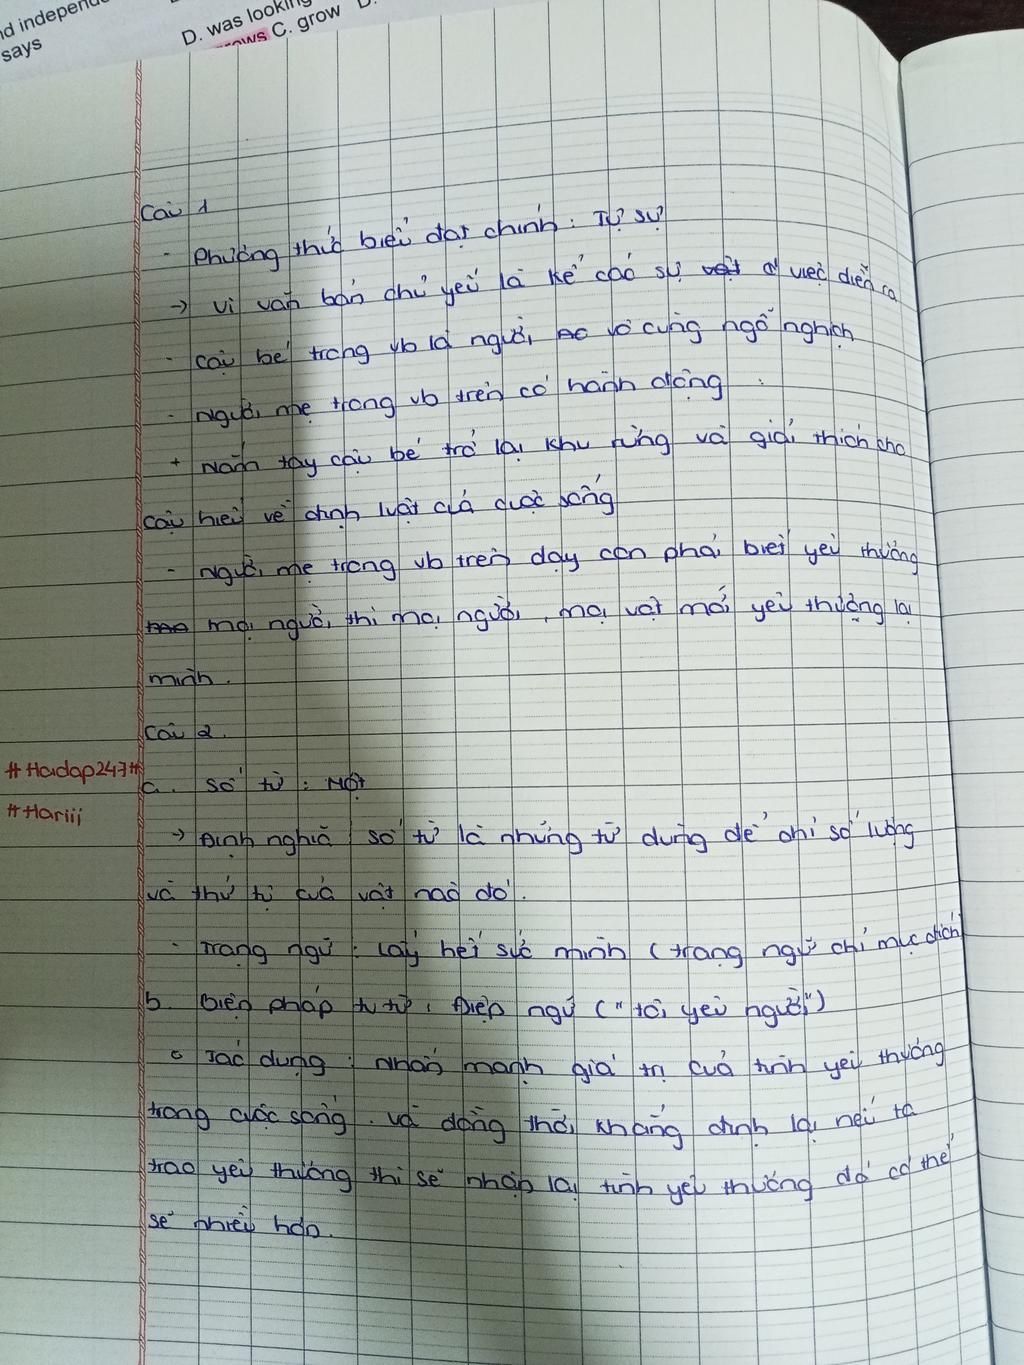 nd independe
says
D. was looking
rows C. grow D.
Câu 1
- Phương thức biểu đạt chính : Tự sự
→ vì văn bản chủ yếu là kể các sự việc diễn ra
- cậu bé trong vb là người vô cùng ngỗ nghịch
- Người mẹ trong vb trên có hành động :
+ Nắm tay cậu bé trở lại khu rừng và giải thích cho
cậu hiểu về định luật của cuộc sống
- Người mẹ trong vb trên dạy con phải biết yêu thương
mọi người thì mọi người, mọi vật mới yêu thương lại
mình.
Câu 2.
#Hoidap247#
a. Số từ : Một
#Hariii
→ Định nghĩa số từ là những từ dùng để chỉ số lượng
và thứ tự của vật nào đó.
- Trạng ngữ : Lấy hết sức mình (trạng ngữ chỉ mục đích
b. Biện pháp tu từ : Điệp ngữ ("tôi yêu người")
Tác dụng : Nhấn mạnh giá trị của tình yêu thương
trong cuộc sống. và đồng thời khẳng định lại nếu ta
trao yêu thương thì sẽ nhận lại tình yêu thương đó có thể
sẽ nhiều hơn.